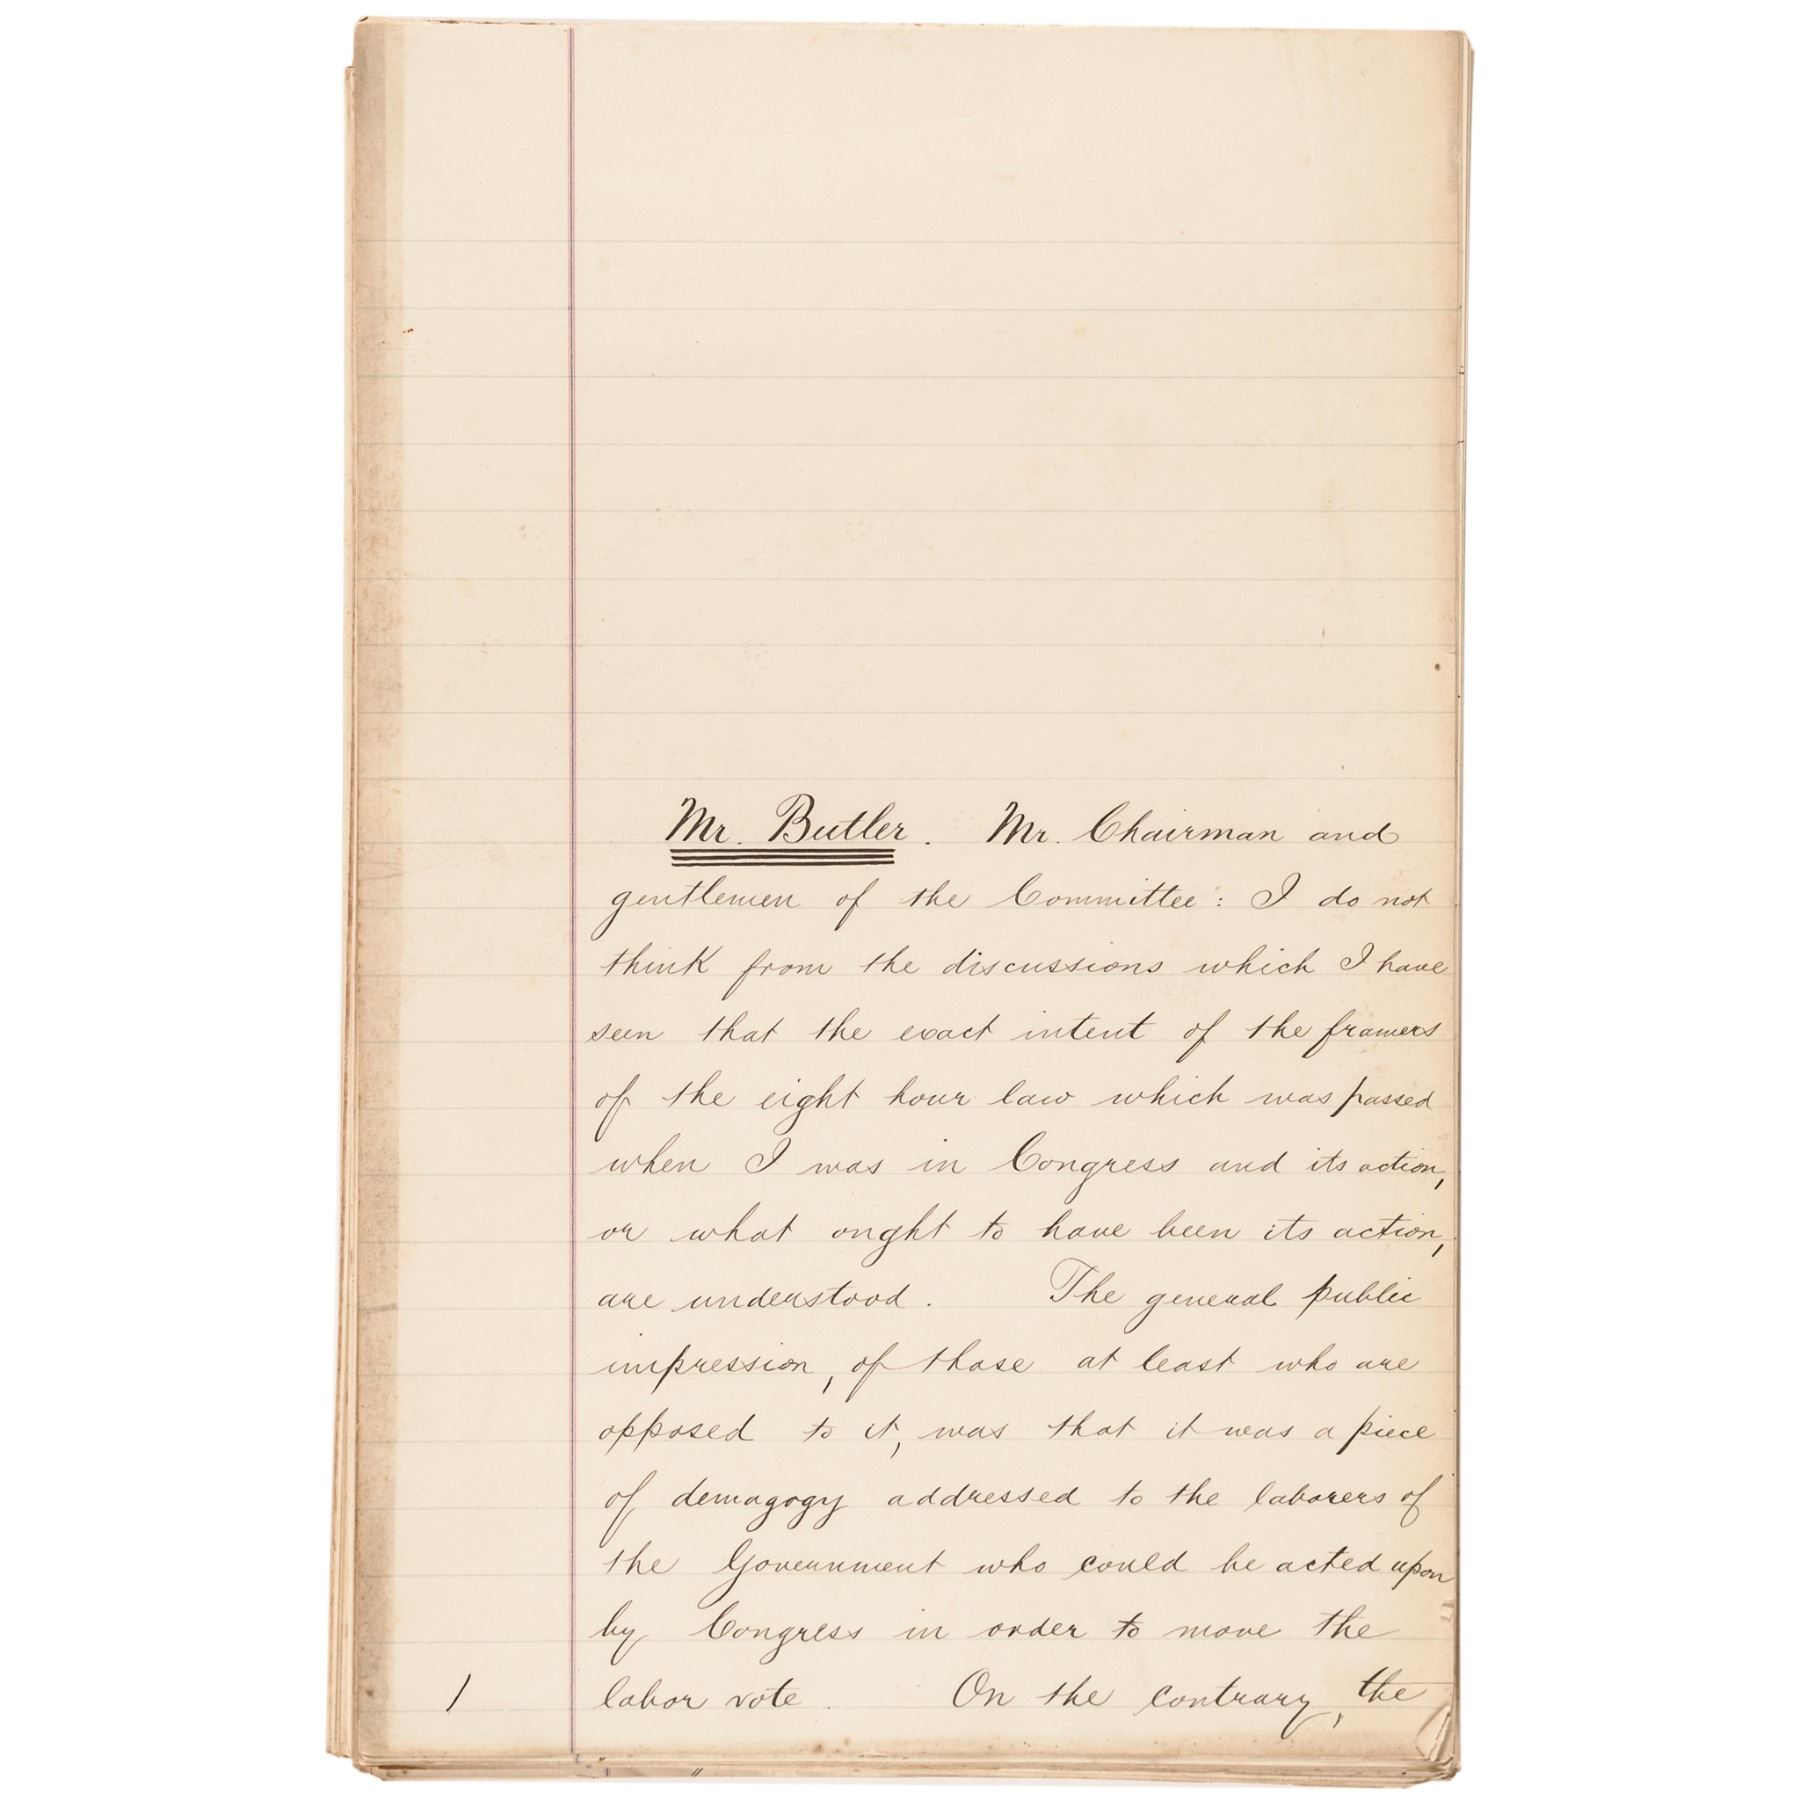 Mr. Butler. Mr. Chairman and
gentlemen of the Committee: I do not
think from the discussions which I have
seen that the exact intent of the framers
of the eight hour law which was passed
when I was in Congress and its action,
or what ought to have been its action,
are understood. The general public
impression, of those at least who are
opposed to it, was that it was a piece
of demagogy addressed to the laborers of
the Government who could be acted upon
by Congress in order to move the
labor vote. On the contrary, the
1